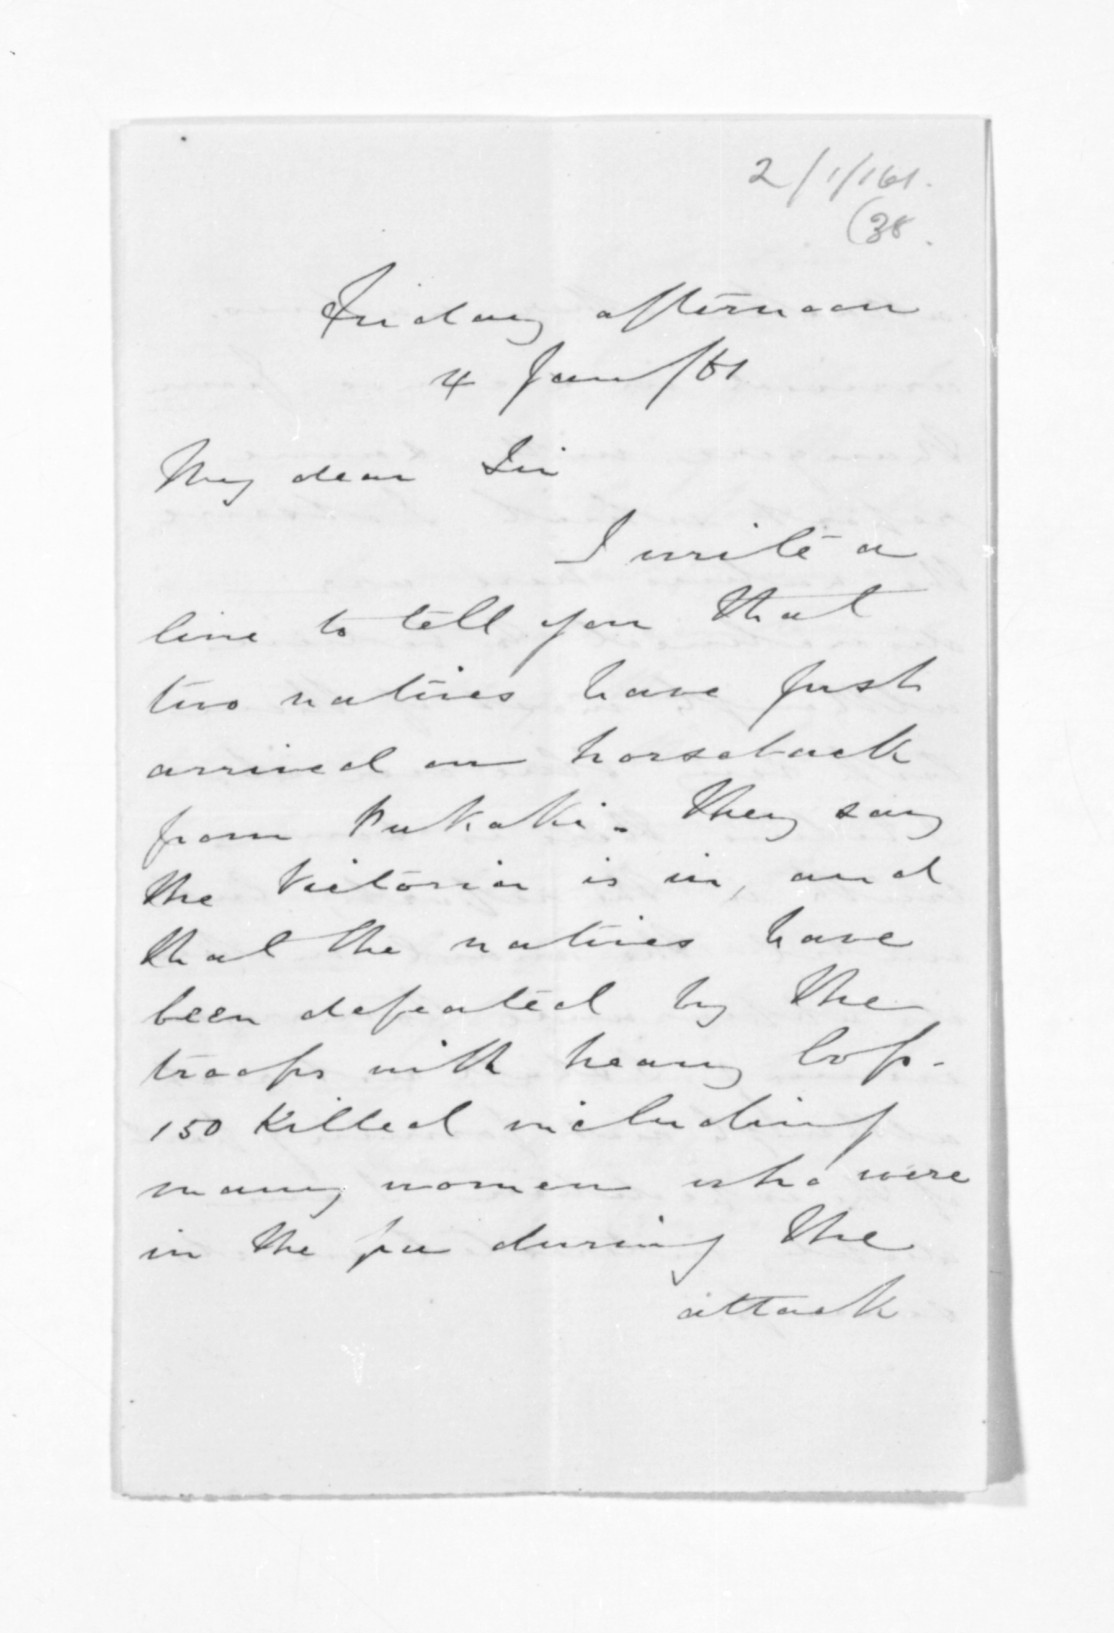 2/1/161.
(38.
Friday afternoon
4 Jan/61
My dear Sir
I write a
line to tell you that
two natives have just
arrived on horseback
from Pukaki. They say
the Victoria is in, and
that the natives have
been defeated by the
troops with heavy loss.
150 killed including
many women who were
in the pa during the
attack